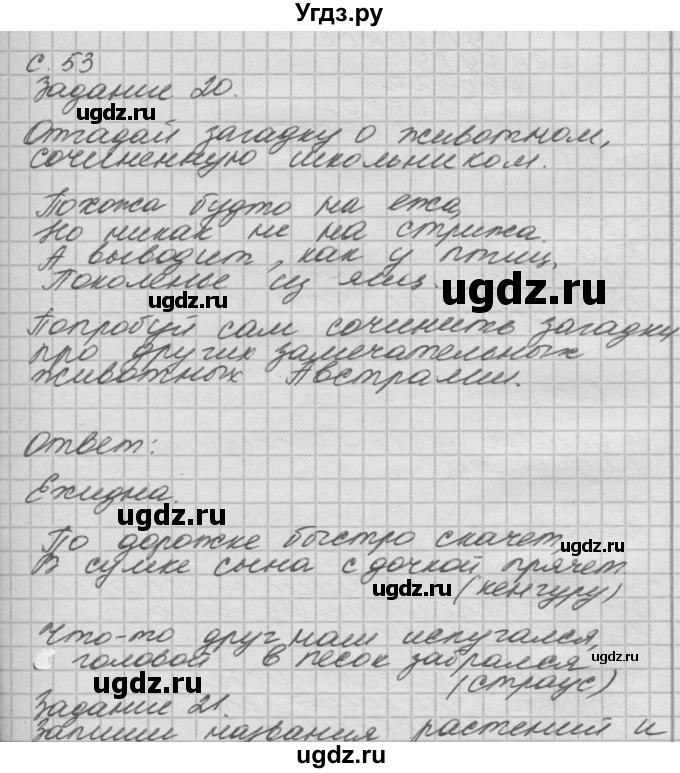 Угдз.ру
с. 53
Задание 20.
угдз.ru
Отгадай загадку о животном,
сочиненную школьником.
Похожа будто на ежа,
Но никак не на стрижа.
А выводит, как у птиц,
Поколенье из яиц.
ugdz.ru
ugdz.ru
Попробуй сам сочинить загадку
про других замечательных
животных Австралии.
Ответ:
Ехидна.
ugdz.ru
По дорожке быстро скачет,
ugdz.ru
В сумке сына с дочкой прячет
ugdz.ru
(кенгуру)
Что-то друг наш испугался,
ugdz.ru
С головой в песок забрался
ugdz.ru
(страус)
Задание 21.
Запиши названия растений и
ugdz.ru